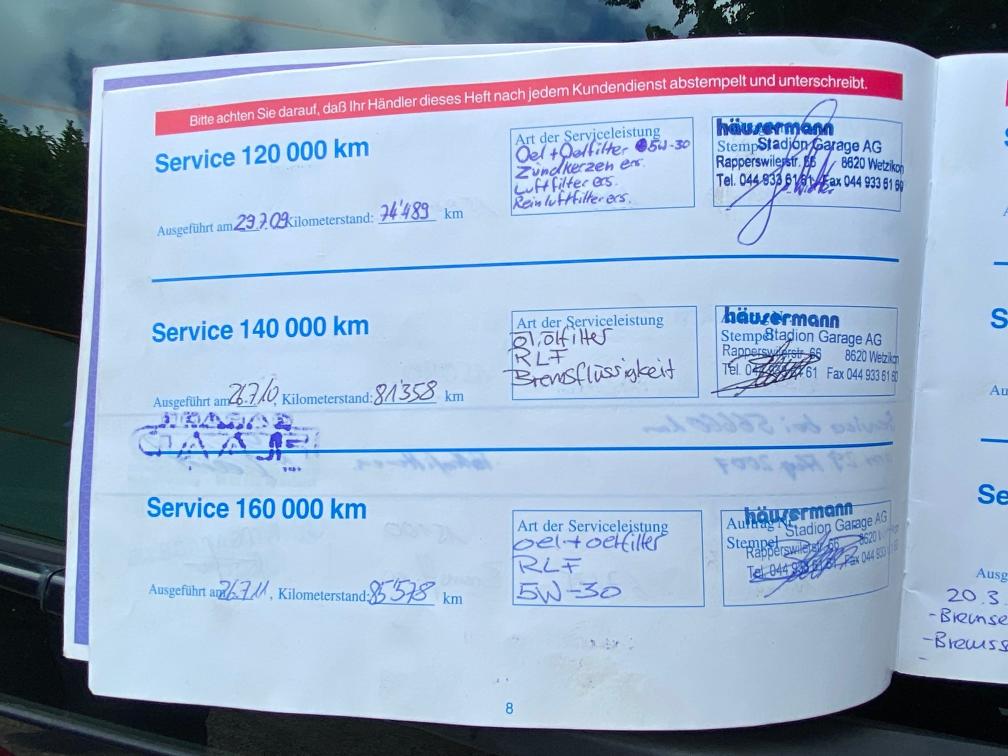 Bitte achten Sie darauf, daß Ihr Händler dieses Heft nach jedem Kundendienst abstempelt und unterschreibt.
Service 120 000 km
Ausgeführt am 29.7.09 Kilometerstand: 74'489 km
Art der Serviceleistung
Oel + Oelfilter 5W-30
Zündkerzen ers.
Luftfilter ers.
Reinluftfilter ers.
häusermann
Stempel Stadion Garage AG
Rapperswilerstr. 66 8620 Wetzikon
Tel. 044 933 61 61 Fax 044 933 61 60
Service 140 000 km
Ausgeführt am 26.7.10, Kilometerstand: 81'358 km
Art der Serviceleistung
Öl, ölfilter
RLF
Bremsflüssigkeit
häusermann
Stempel Stadion Garage AG
Rapperswilerstr. 66 8620 Wetzikon
Tel. 04 61 Fax 044 933 61 60
Service 160 000 km
Ausgeführt am 26.7.11, Kilometerstand: 85'578 km
Art der Serviceleistung
oel + oelfilter
RLF
5W-30
häusermann
Auftrag Nr.
Stempel Stadion Garage AG
Rapperswilerstr. 66 8620
Tel. 044 933 61 61, Fax 044 933
8
S
Au
Se
Ausg
20.3
- Bremse
- Bremss